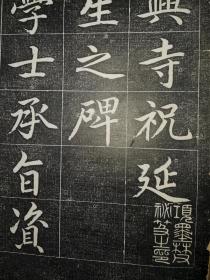 興寺祝延
生之碑
學士承旨資
項墨林
祕笈之印